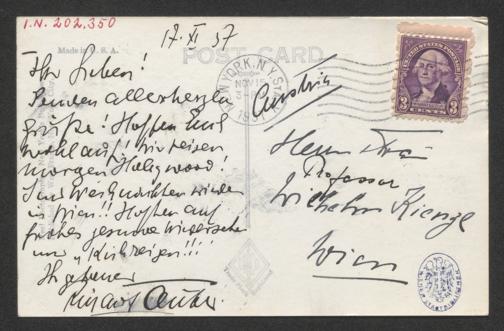 I.N. 202.350
17. XI 37
Made in U. S. A.
POST CARD
NEW YORK, N.Y. STA.
NOV 15
1937
UNITED STATES POSTAGE
3 CENTS 3
Austria
Ihr Lieben!
Senden allerherzl.
Grüße! Hoffen Euch
wohlauf! Wir reisen
morgen Hollywood!
Sind Weihnachten wieder
in Wien!! Hoffen auf
frohes gesundes Wiedersehn
und "Kuhreigen"!!!
Ihr getreuer
Herrn
Professor
Wilhelm Kienzl
Wien